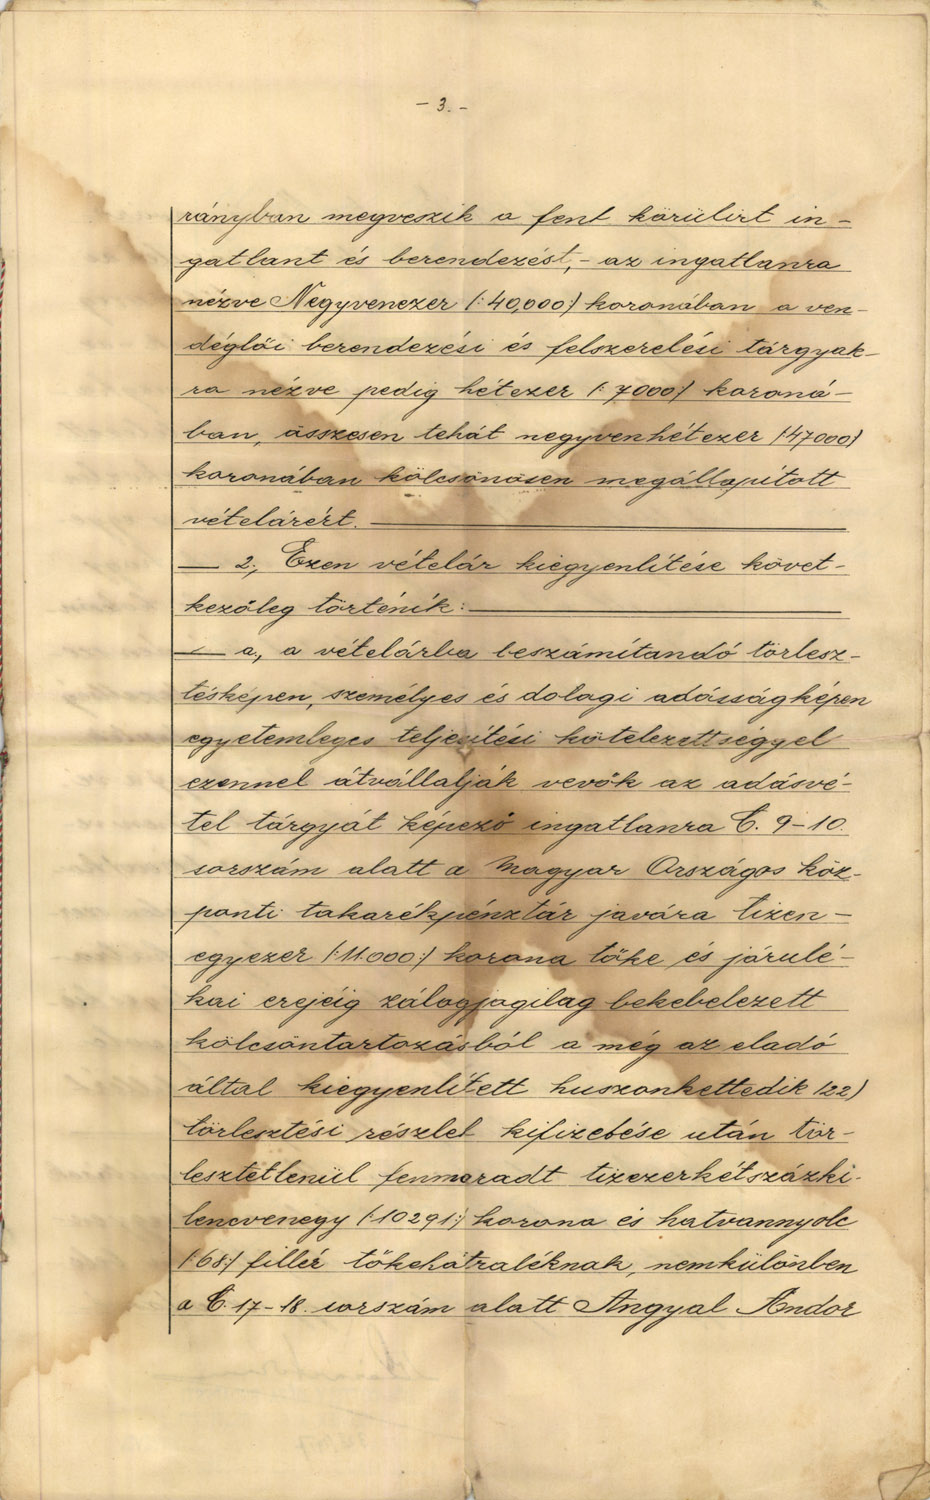 - 3. -
rányban megveszik a fent körülirt in-
gatlant és berendezést, - az ingatlanra
nézve Negyvenezer (:40,000:) koronában a ven-
déglői berendezési és felszerelési tárgyak-
ra nézve pedig hétezer (:7000:) koroná-
ban, összesen tehát negyvenhétezer (47000)
koronában kölcsönösen megállapitott
vételárért.
— 2., Ezen vételár kiegyenlítése követ-
kezőleg történik:
— a., a vételárba beszámítandó törlesz-
tésképen, személyes és dologi adósságképen
egyetemleges teljesítési kötelezettséggyel
ezennel átvállalják vevők az adásvé-
tel tárgyát képező ingatlanra C. 9-10.
sorszám alatt a Magyar Országos köz-
ponti takarékpénztár javára tizen-
egyezer (:11.000:) korona tőke és járulé-
kai erejéig zálogjogilag bekebelezett
kölcsöntartozásból a még az eladó
által kiegyenlített huszonkettedik (22)
törlesztési részlet kifizetése után tör-
lesztetlenül fenmaradt tizezerkétszázki-
lencvenegy (:10291:) korona és hatvannyolc
(:68:) fillér tőkehátraléknak, nemkülönben
a C. 17-18. sorszám alatt Angyal Andor